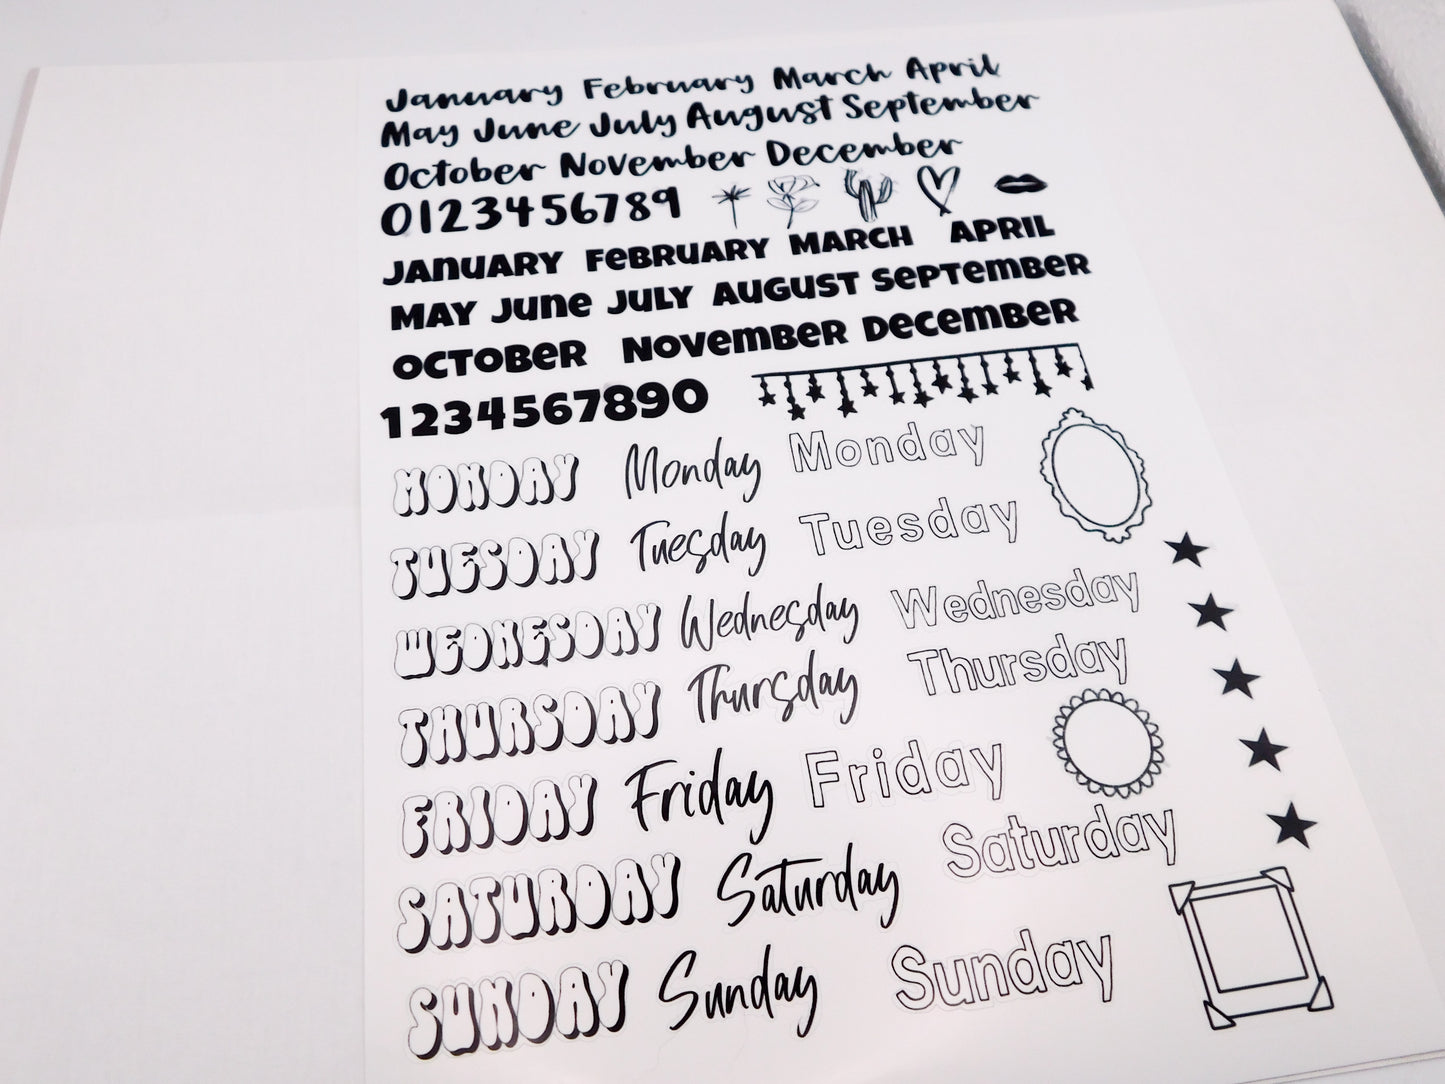 January February March April
May June July August September
October November December
0123456789
JANUARY FEBRUARY MARCH APRIL
MAY June JULY AUGUST SEPTEMBER
OCTOBER NOVEMBER DECEMBER
1234567890
MONDAY Monday Monday
TUESDAY Tuesday Tuesday
WEDNESDAY Wednesday Wednesday
THURSDAY Thursday Thursday
FRIDAY Friday Friday
SATURDAY Saturday Saturday
SUNDAY Sunday Sunday